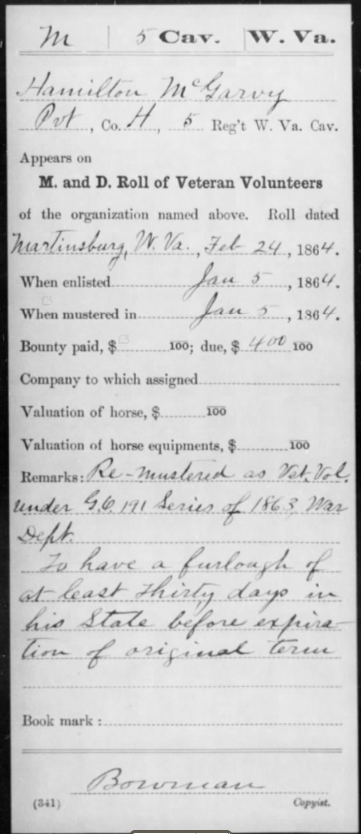 M | 5 Cav. | W. Va.
Hamilton McGarvy
Pvt, Co. H, 5 Reg't W. Va. Cav.
Appears on
M. and D. Roll of Veteran Volunteers
of the organization named above. Roll dated
Martinsburg, W. Va., Feb 24, 1864.
When enlisted Jan 5, 1864.
When mustered in Jan 5, 1864.
Bounty paid, $ 100; due, $ 400 100
Company to which assigned
Valuation of horse, $ 100
Valuation of horse equipments, $ 100
Remarks: Re-mustered as Vet. Vol.
under G.O. 191 Series of 1863, War
Dept.
To have a furlough of
at least thirty days in
his State before expira-
tion of original term
Book mark:
Bowman
(341) Copyist.